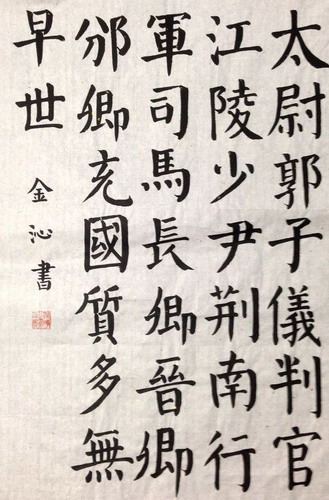 太尉郭子儀判官
江陵少尹荆南行
軍司馬長卿晉卿
邠卿充國質多無
早世
金沁書